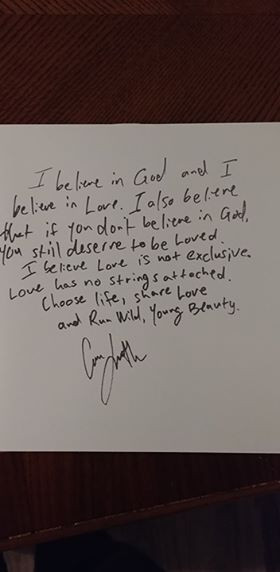 I believe in God and I
believe in Love. I also believe
that if you don't believe in God,
you still deserve to be Loved.
I believe Love is not exclusive.
Love has no strings attached.
Choose life, share Love
and Run Wild, Young Beauty.